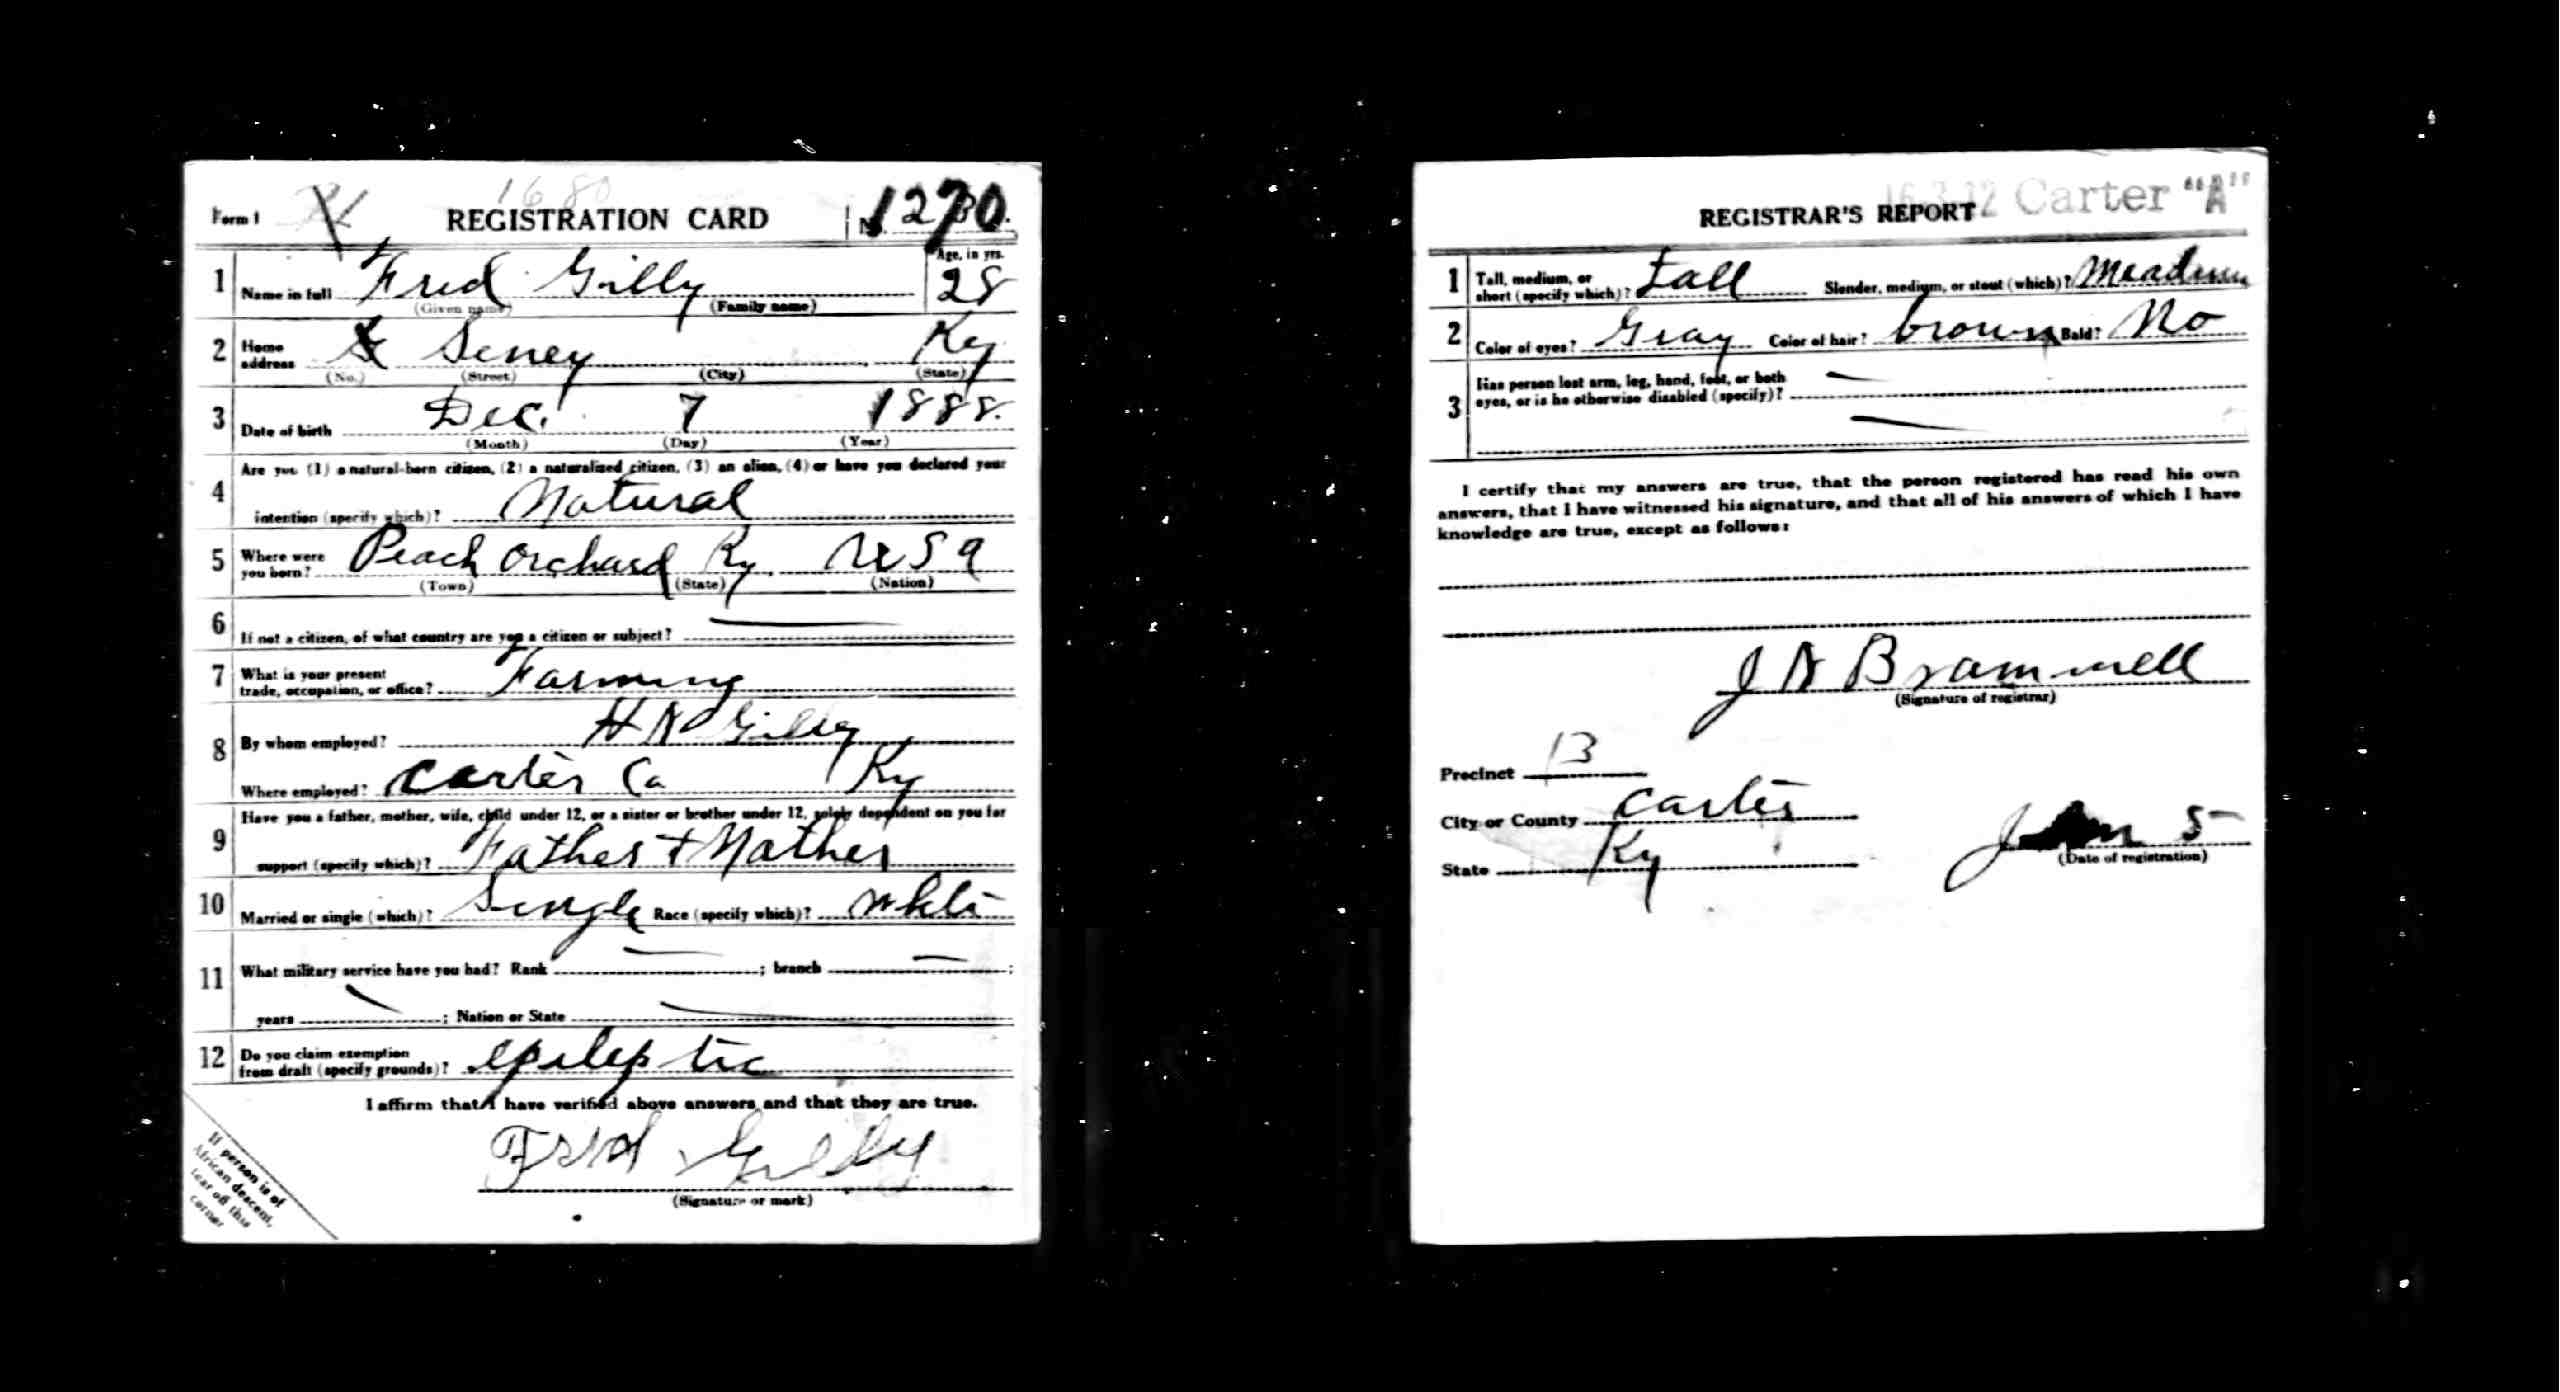 1680
Form 1 REGISTRATION CARD No. 1270
1 Name in full Fred Gilly Age, in yrs. 28
(Given name) (Family name)
2 Home address Seney Ky
(No.) (Street) (City) (State)
3 Date of birth Dec. 7 1888.
(Month) (Day) (Year)
4 Are you (1) a natural-born citizen, (2) a naturalized citizen, (3) an alien, (4) or have you declared your
intention (specify which)? Natural
5 Where were you born? Peach Orchard Ky. USA
(Town) (State) (Nation)
6 If not a citizen, of what country are you a citizen or subject?
7 What is your present
trade, occupation, or office? Farming
8 By whom employed? H N Gilley
Where employed? Carter Co Ky
9 Have you a father, mother, wife, child under 12, or a sister or brother under 12, solely dependent on you for
support (specify which)? Father + Mother
10 Married or single (which)? Single Race (specify which)? white
11 What military service have you had? Rank ; branch ;
years ; Nation or State
12 Do you claim exemption
from draft (specify grounds)? epileptic
I affirm that I have verified above answers and that they are true.
Fred Gilly
(Signature or mark)
If person is of
African descent,
tear off this
corner
REGISTRAR'S REPORT Carter "A"
1 Tall, medium, or
short (specify which)? Tall Slender, medium, or stout (which)? Meadium
2 Color of eyes? Gray Color of hair? brown Bald? No
3 Has person lost arm, leg, hand, foot, or both
eyes, or is he otherwise disabled (specify)?
I certify that my answers are true, that the person registered has read his own
answers, that I have witnessed his signature, and that all of his answers of which I have
knowledge are true, except as follows:
J N Brammell
(Signature of registrar)
Precinct 13
City or County Carter
State Ky
5
(Date of registration)